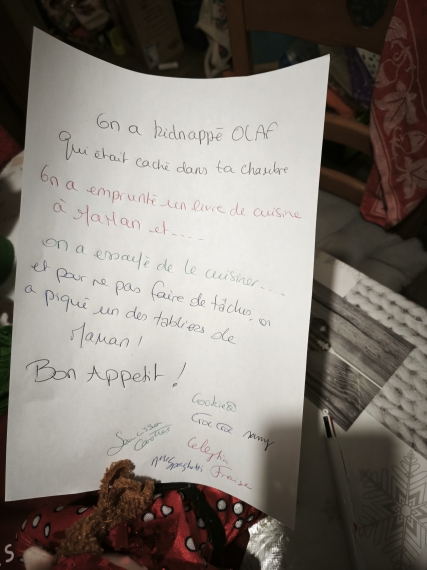 On a kidnappé OLAF
qui était caché dans ta chambre
On a emprunté un livre de cuisine
à Maman et....
on a essayé de le cuisiner....
et pour ne pas faire de tâches, on
a piqué un des tabliers de
Maman !
Bon Appetit !
Cookies
Croc Croc Samy
Saucisson
Carotte
Célestin
Mlle Spaghetti Fraise
S